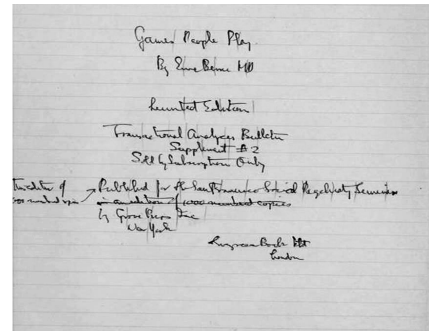 Games People Play
By Eric Berne MD
Limited Edition
Transactional Analysis Bulletin
Supplement # 2
Sold by Subscription Only
This edition of
Published for the San Francisco Social Psychiatry Seminars
in an edition of 1000 numbered copies
by Grove Press Inc
New York
London